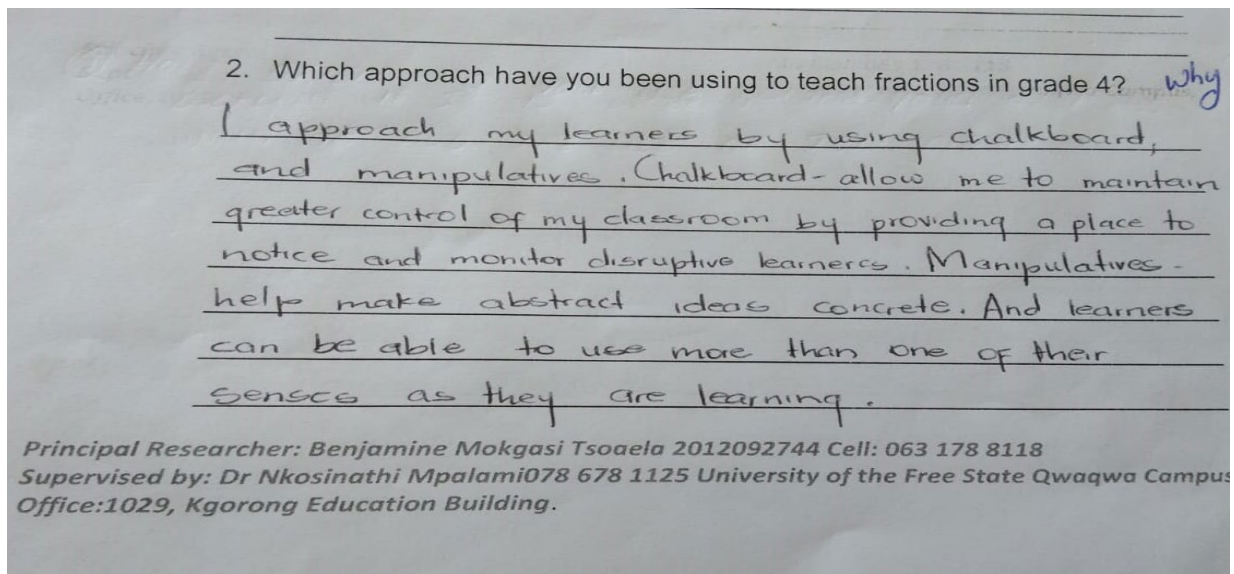 2. Which approach have you been using to teach fractions in grade 4? Why
I approach my learners by using chalkboard,
and manipulatives. Chalkboard - allow me to maintain
greater control of my classroom by providing a place to
notice and monitor disruptive learners. Manipulatives -
help make abstract ideas concrete. And learners
can be able to use more than one of their
senses as they are learning.
Principal Researcher: Benjamine Mokgasi Tsoaela 2012092744 Cell: 063 178 8118
Supervised by: Dr Nkosinathi Mpalami078 678 1125 University of the Free State Qwaqwa Campus
Office:1029, Kgorong Education Building.